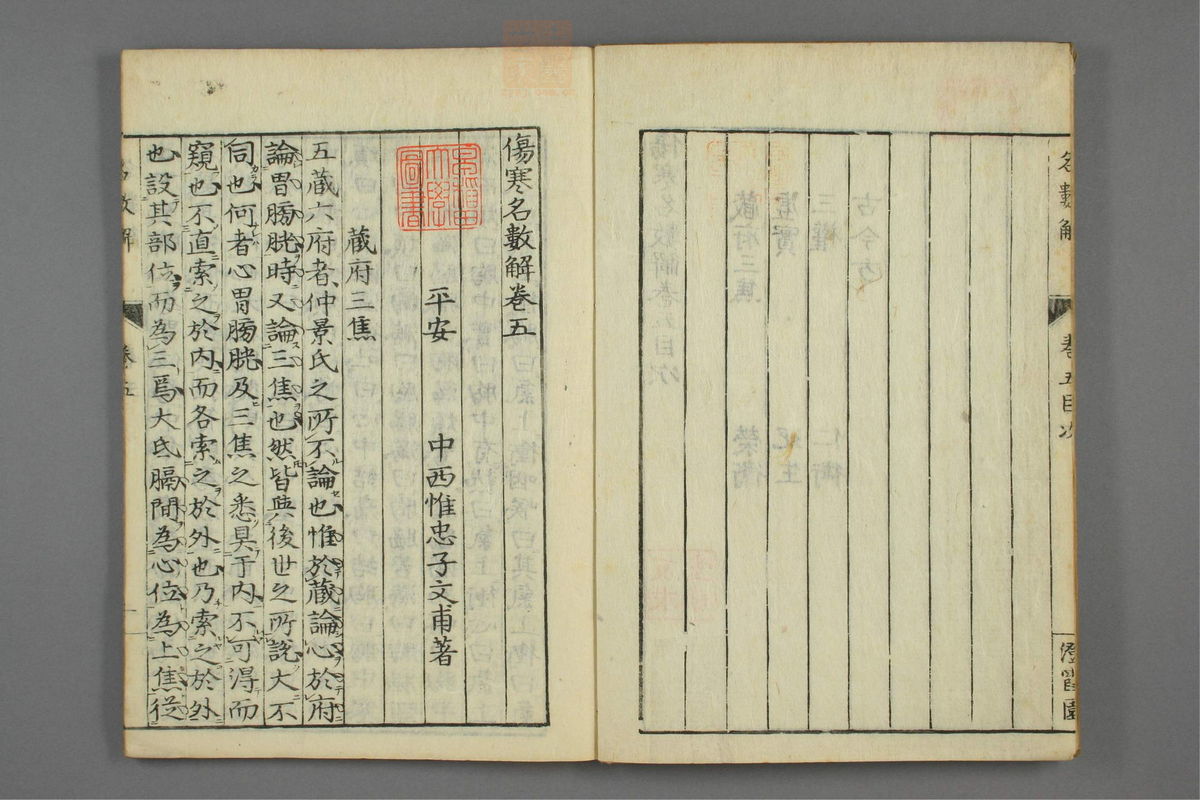 名數解
卷五目次
澄雷園
傷寒名數解卷五
平安 中西惟忠子文甫著
藏府三焦
五藏六府者仲景氏之所不論也惟於藏論心於府
論胃膀胱時又論三焦也然皆與後世之所說大不
同也何者心胃膀胱及三焦之悉具于內不可得而
窺也不直索之於內而各索之於外也乃索之於外
也設其部位而為三焉大氐膈間為心位為上焦從
名數解
卷五